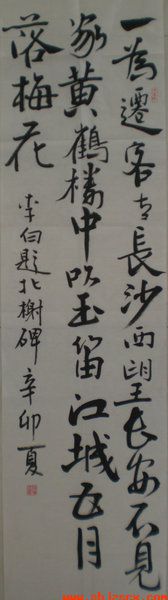 一為遷客去長沙西望長安不見
家黃鶴樓中吹玉笛江城五月
落梅花
李白題北榭碑 辛卯夏